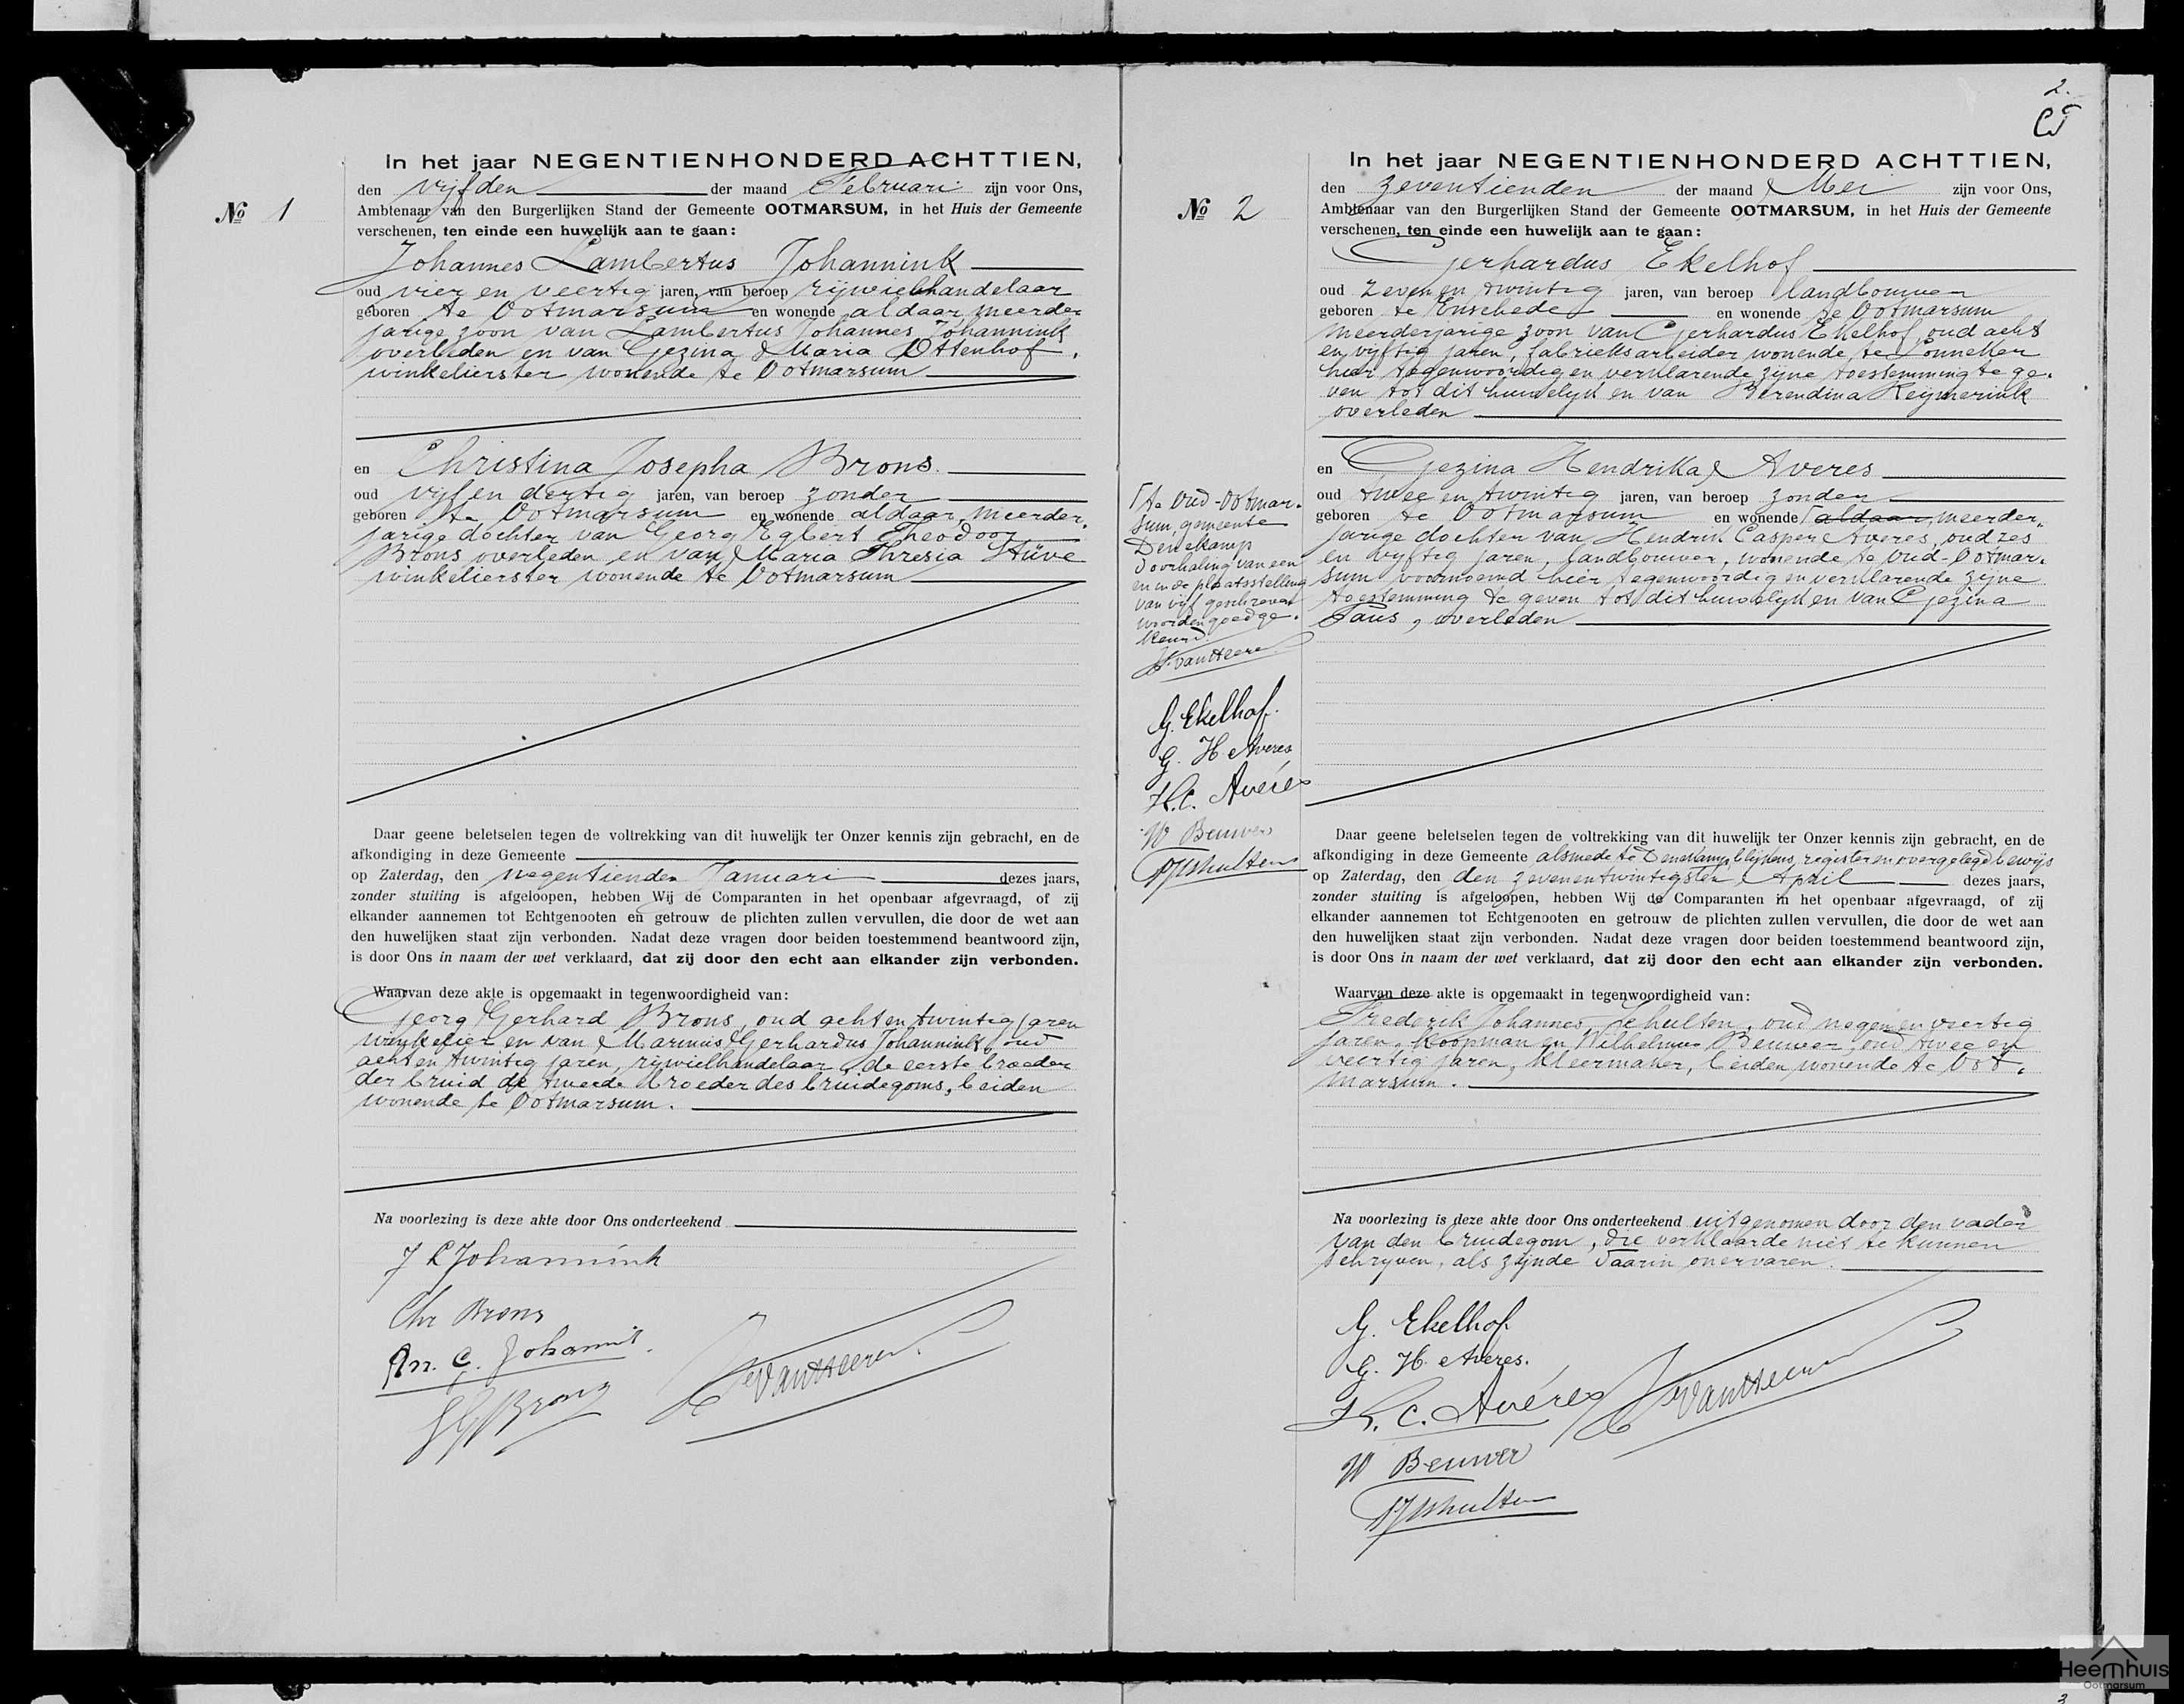 In het jaar NEGENTIENHONDERD ACHTTIEN,
den vijfden der maand Februari zijn voor Ons,
Ambtenaar van den Burgerlijken Stand der Gemeente OOTMARSUM, in het Huis der Gemeente
verschenen, ten einde een huwelijk aan te gaan:
No 1
Johannes Lambertus Johannink
oud vier en veertig jaren, van beroep rijwielhandelaar
geboren te Ootmarsum en wonende aldaar, meerder
jarige zoon van Lambertus Johannes Johannink
overleden en van Gezina Maria Ottenhof,
winkelierster wonende te Ootmarsum
en Christina Josepha Brons.
oud vijf en dertig jaren, van beroep zonder
geboren te Ootmarsum en wonende aldaar, meerder,
jarige dochter van Georg Egbert Theodoor
Brons overleden en van Maria Thresia Stüve
winkelierster wonende te Ootmarsum
Daar geene beletselen tegen de voltrekking van dit huwelijk ter Onzer kennis zijn gebracht, en de
afkondiging in deze Gemeente
op Zaterdag, den negentienden Januari dezes jaars,
zonder stuiting is afgeloopen, hebben Wij de Comparanten in het openbaar afgevraagd, of zij
elkander aannemen tot Echtgenooten en getrouw de plichten zullen vervullen, die door de wet aan
den huwelijken staat zijn verbonden. Nadat deze vragen door beiden toestemmend beantwoord zijn,
is door Ons in naam der wet verklaard, dat zij door den echt aan elkander zijn verbonden.
Waarvan deze akte is opgemaakt in tegenwoordigheid van:
Georg Gerhard Brons, oud acht en twintig jaren
winkelier en van Marinus Gerhardus Johannink, oud
acht en twintig jaren, rijwielhandelaar, de eerste broeder
der bruid de tweede broeder des bruidegoms, beiden
wonende te Ootmarsum.
Na voorlezing is deze akte door Ons onderteekend
J L Johannink
Chr Brons
G. Johannink
GG Brons
van Heeren
2.
In het jaar NEGENTIENHONDERD ACHTTIEN,
den zeventienden der maand Mei zijn voor Ons,
Ambtenaar van den Burgerlijken Stand der Gemeente OOTMARSUM, in het Huis der Gemeente
verschenen, ten einde een huwelijk aan te gaan:
No 2
Gerhardus Ekelhof
oud zeven en twintig jaren, van beroep landbouwer
geboren te Enschede en wonende te Ootmarsum
meerderjarige zoon van Gerhardus Ekelhof, oud acht
en vijftig jaren, fabrieksarbeider wonende te Lonneker
hier tegenwoordig en verklarende zijne toestemming te ge,
ven tot dit huwelijk en van Berendina Reijmerink
overleden
en Gezina Hendrika Averes
oud twee en twintig jaren, van beroep zonder
geboren te Ootmarsum en wonende aldaar, meerder,
jarige dochter van Hendrik Casper Averes, oud zes
en vijftig jaren, landbouwer, wonende te Oud-Ootmar,
sum voornoemd hier tegenwoordig en verklarende zijne
toestemming te geven tot dit huwelijk en van Gezina
Paus, overleden
te Oud-Ootmar,
sum, gemeente
Denekamp
Doorhaling van een
en in de plaatsstelling
van vijf geschreven
woorden goedge,
keurd.
van Heeren
G. Ekelhof.
G. H. Averes
H.C. Avéres
W Beuwer
FJSchulten
Daar geene beletselen tegen de voltrekking van dit huwelijk ter Onzer kennis zijn gebracht, en de
afkondiging in deze Gemeente alsmede te Denekamp, blijkens register en overgelegd bewijs
op Zaterdag, den den zevenentwintigsten April dezes jaars,
zonder stuiting is afgeloopen, hebben Wij de Comparanten in het openbaar afgevraagd, of zij
elkander aannemen tot Echtgenooten en getrouw de plichten zullen vervullen, die door de wet aan
den huwelijken staat zijn verbonden. Nadat deze vragen door beiden toestemmend beantwoord zijn,
is door Ons in naam der wet verklaard, dat zij door den echt aan elkander zijn verbonden.
Waarvan deze akte is opgemaakt in tegenwoordigheid van:
Frederik Johannes Schulten, oud negen en veertig
jaren, koopman en Wilhelmus Beuwer, oud twee en
veertig jaren, kleermaker, beiden wonende te Oot,
marsum.
Na voorlezing is deze akte door Ons onderteekend uitgenomen door den vader
van den bruidegom, die verklaarde niet te kunnen
schrijven, als zijnde daarin onervaren.
G. Ekelhof.
G. H. Averes.
H. C. Avéres
van Heeren
W Beuwer
FJSchulten
Heemhuis
Ootmarsum